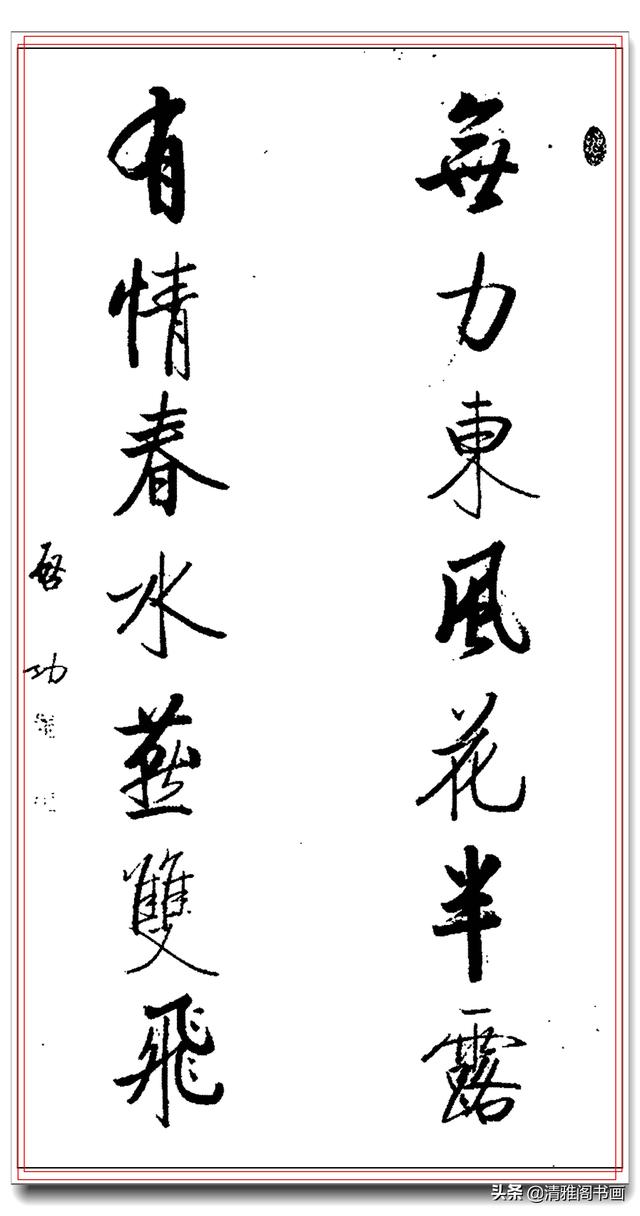 無力東風花半露
有情春水燕雙飛
啓功
头条 @清雅阁书画